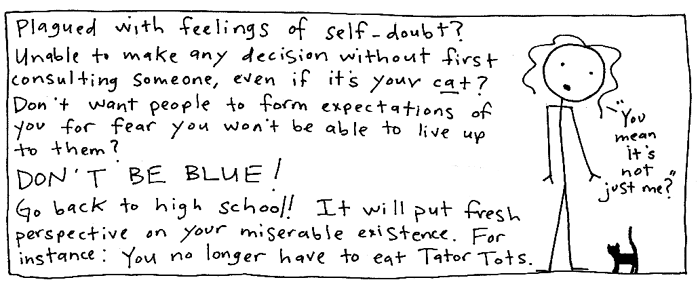 Plagued with feelings of self-doubt?
Unable to make any decision without first
consulting someone, even if it's your cat?
Don't want people to form expectations of
you for fear you won't be able to live up
to them?
DON'T BE BLUE!
Go back to high school! It will put fresh
perspective on your miserable existence. For
instance: You no longer have to eat Tator Tots.
"You
mean
it's
not
just me?"